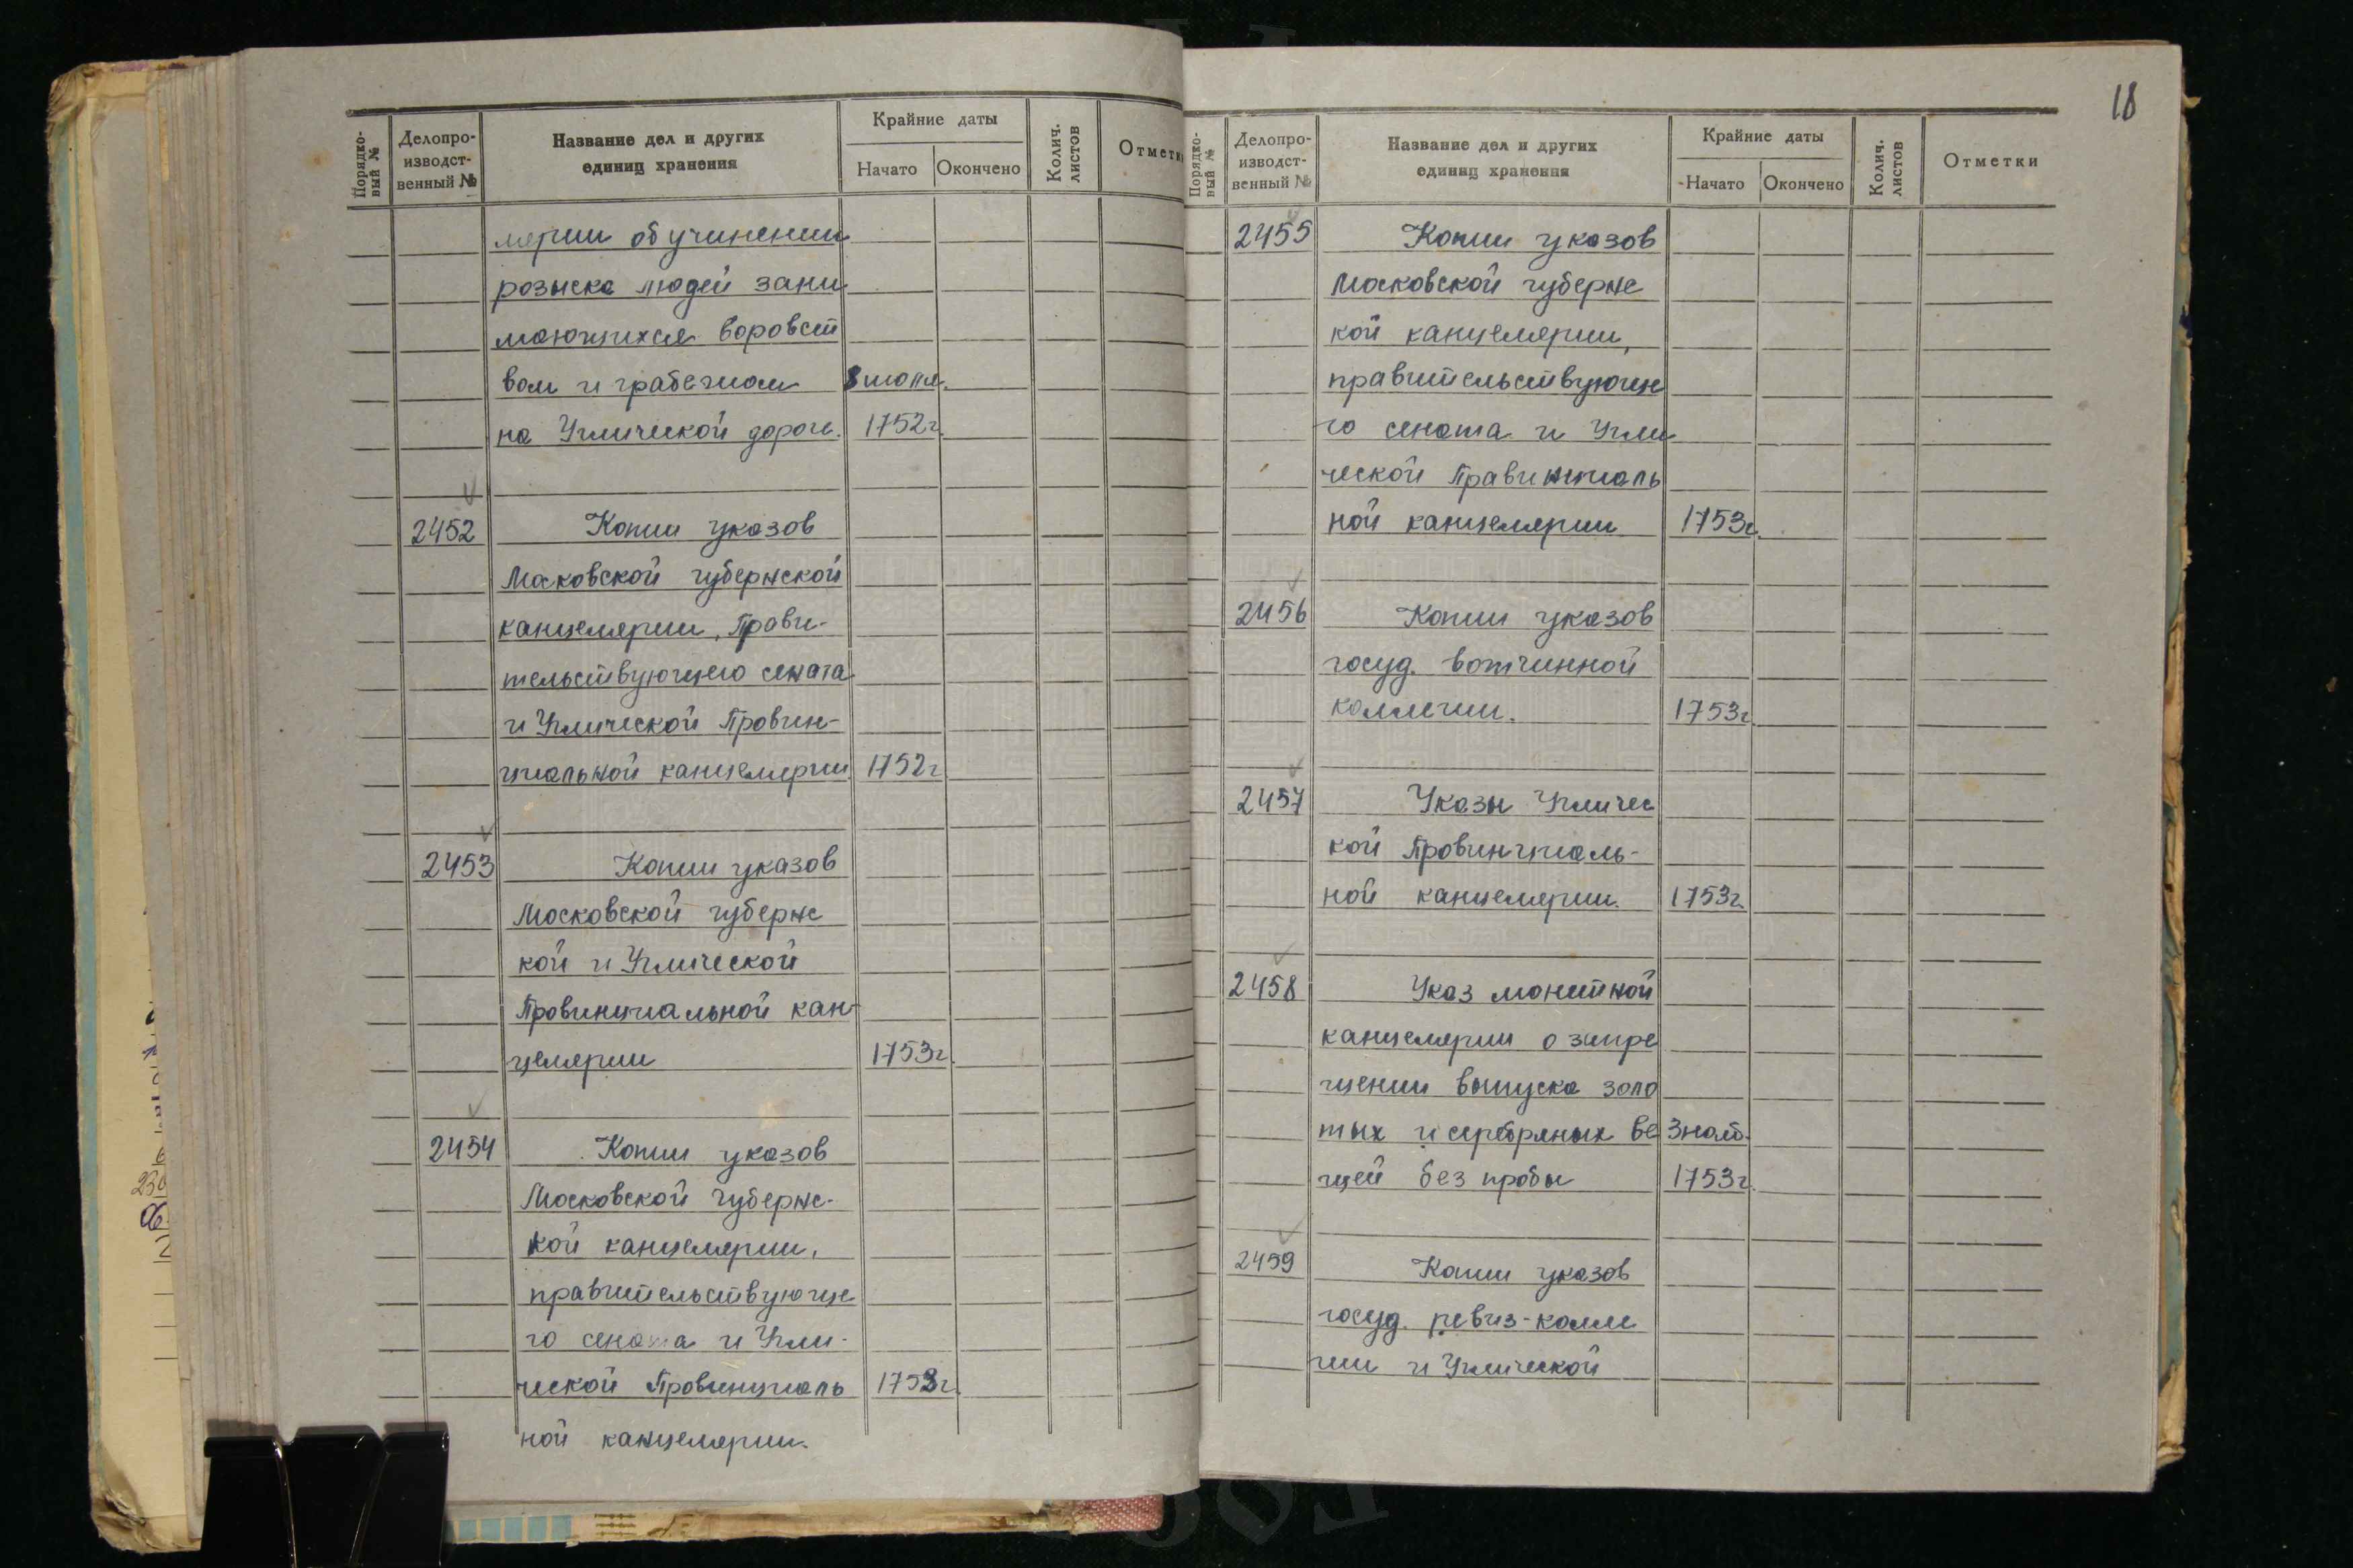 Порядко-
вый №
Делопро-
изводст-
венный №
Название дел и других
единиц хранения
Крайние даты
Начато
Окончено
Колич.
листов
Отметк
мерии об учинении
розыска людей зани
мающихся воровст
вом и грабежом 8 июля
на Углической дороге. 1752г.
2452 Копии указов
Московской губернской
канцелярии, Прави-
тельствующего сената
и Углической Провин-
циальной канцелярии 1752г
2453 Копии указов
Московской губернс
кой и Углической
Провинциальной кан-
целярии 1753г.
2454 Копии указов
Московской губернс-
кой канцелярии,
правительствующе
го сената и Угли-
ческой Провинциаль 1753г.
ной канцелярии.
18
Порядко-
вый №
Делопро-
изводст-
венный №
Название дел и других
единиц хранения
Крайние даты
Начато
Окончено
Колич.
листов
Отметки
2455 Копии указов
Московской губернс
кой канцелярии,
правительствующе
го сената и Угли
ческой Правинциаль
ной канцелярии 1753г.
2456 Копии указов
госуд. вотчинной
коллегии. 1753г.
2457 Указы Угличес
кой Провинциаль-
ной канцелярии. 1753г.
2458 Указ монетной
канцелярии о запре
щении выпуска золо
тых и серебряных ве
щей без пробы 1753г.
2459 Копии указов
госуд. ревиз-колле
гии и Углической